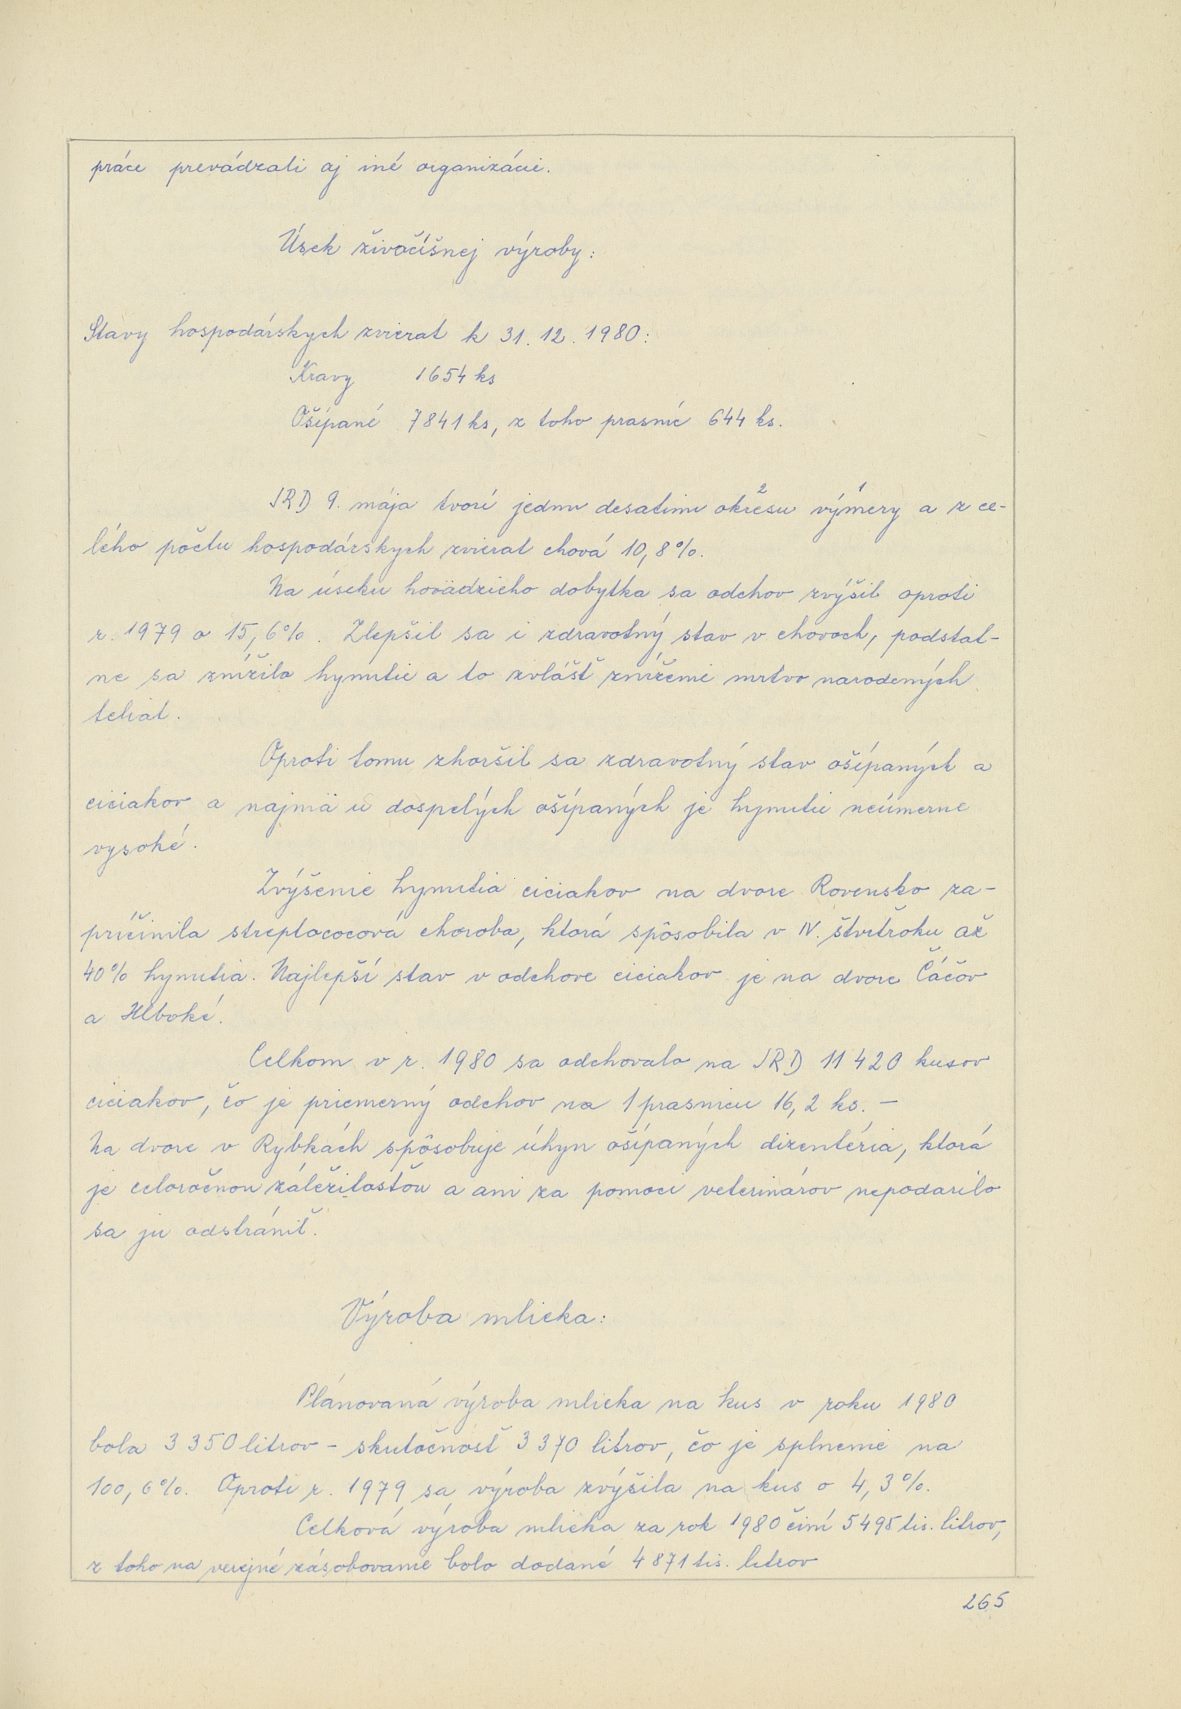 práce prevádzali aj iné organizácie.
Úsek živočíšnej výroby:
Stavy hospodárskych zvierat k 31. 12. 1980:
Kravy 1654 ks
Ošípané 7841 ks, z toho prasníc 644 ks.
JRD 9. mája tvorí jednu desatinu okresu 2 výmery 1 a z ce-
lého počtu hospodárskych zvierat chová 10,8%.
Na úseku hovädzieho dobytka sa odchov zvýšil oproti
r. 1979 o 15,6%. Zlepšil sa i zdravotný stav v chovoch, podstat-
ne sa znížilo hynutie a to zvlášť zníženie mrtvo narodených
teliat.
Oproti tomu zhoršil sa zdravotný stav ošípaných a
ciciakov a najmä u dospelých ošípaných je hynutie neúmerne
vysoké.
Zvýšenie hynutia ciciakov na dvore Rovensko za-
príčinila streptococová choroba, ktorá spôsobila v IV. štvrťroku až
40% hynutia. Najlepší stav v odchove ciciakov je na dvore Čáčov
a Hlboké.
Celkom v r. 1980 sa odchovalo na JRD 11 420 kusov
ciciakov, čo je priemerný odchov na 1 prasnicu 16,2 ks. –
Na dvore v Rybkách spôsobuje úhyn ošípaných dizentéria, ktorá
je celoročnou záležitosťou a ani za pomoci veterinárov nepodarilo
sa ju odstrániť.
Výroba mlieka:
Plánovaná výroba mlieka na kus v roku 1980
bola 3 350 litrov – skutočnosť 3 370 litrov, čo je splnenie na
100,6%. Oproti r. 1979 sa výroba zvýšila na kus o 4,3%.
Celková výroba mlieka za rok 1980 činí 5 495 tis. litrov,
z toho na verejné zásobovanie bolo dodané 4 871 tis. litrov
265